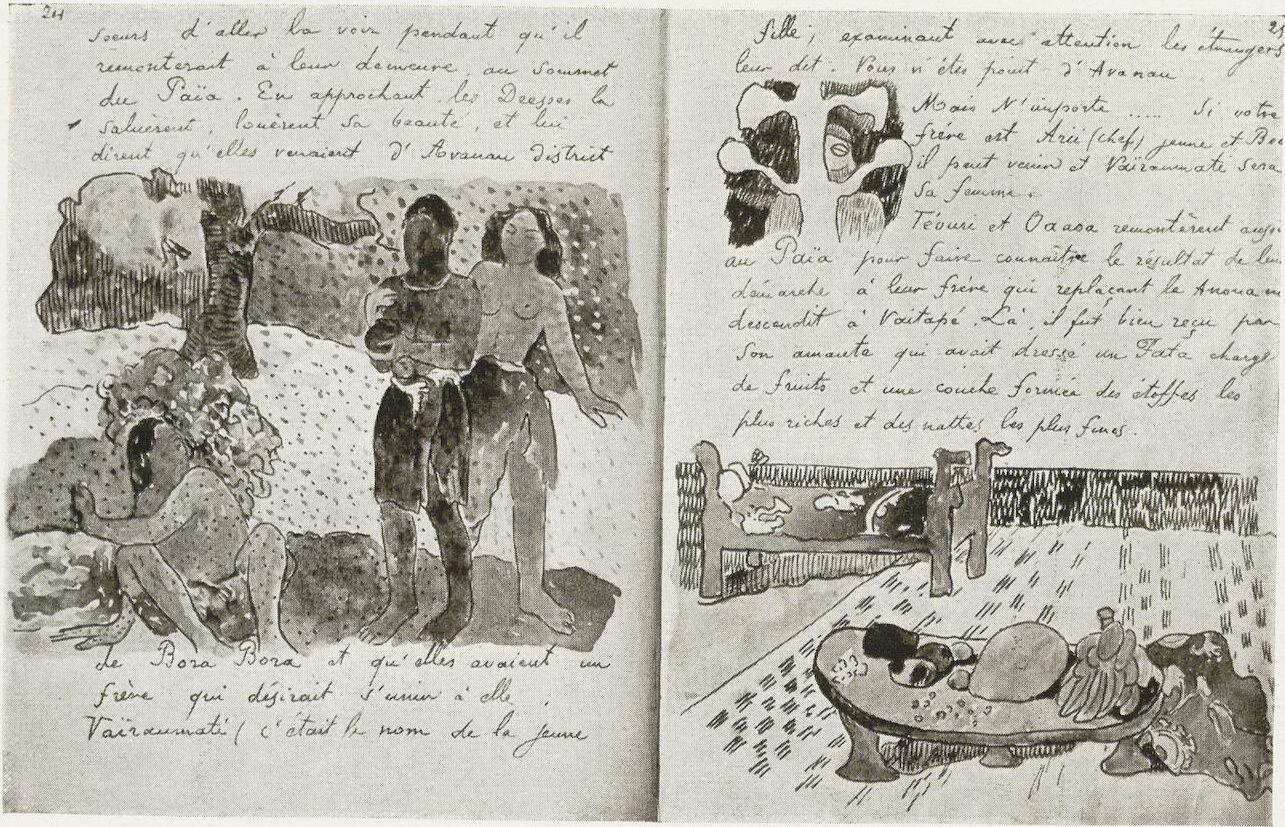 24
soeurs d'aller la voir pendant qu'il
remonterait à leur demeure, au sommet
du Païa. En approchant les Deesses la
saluèrent, louèrent sa beauté, et lui
dirent qu'elles venaient d'Avanau district
de Bora Bora et qu'elles avaient un
frère qui désirait s'unir à elle.
Vaïraumati (c'était le nom de la jeune
25
fille, examinant avec attention les étrangers
leur dit. Vous n'êtes point d'Avanau
Mais N'importe ..... Si votre
frère est Arii (chef) jeune et Beau
il peut venir et Vaïraumati sera
sa femme.
Téouri et Oaaoa remontèrent aussi
au Païa pour faire connaître le résultat de leur
démarche à leur frère qui replaçant le Anoua
descendit à Vaitapé. Là, il fut bien reçu par
son amante qui avait dressé un Fata charg
de fruits et une couche formée des étoffes les
plus riches et des nattes les plus fines.